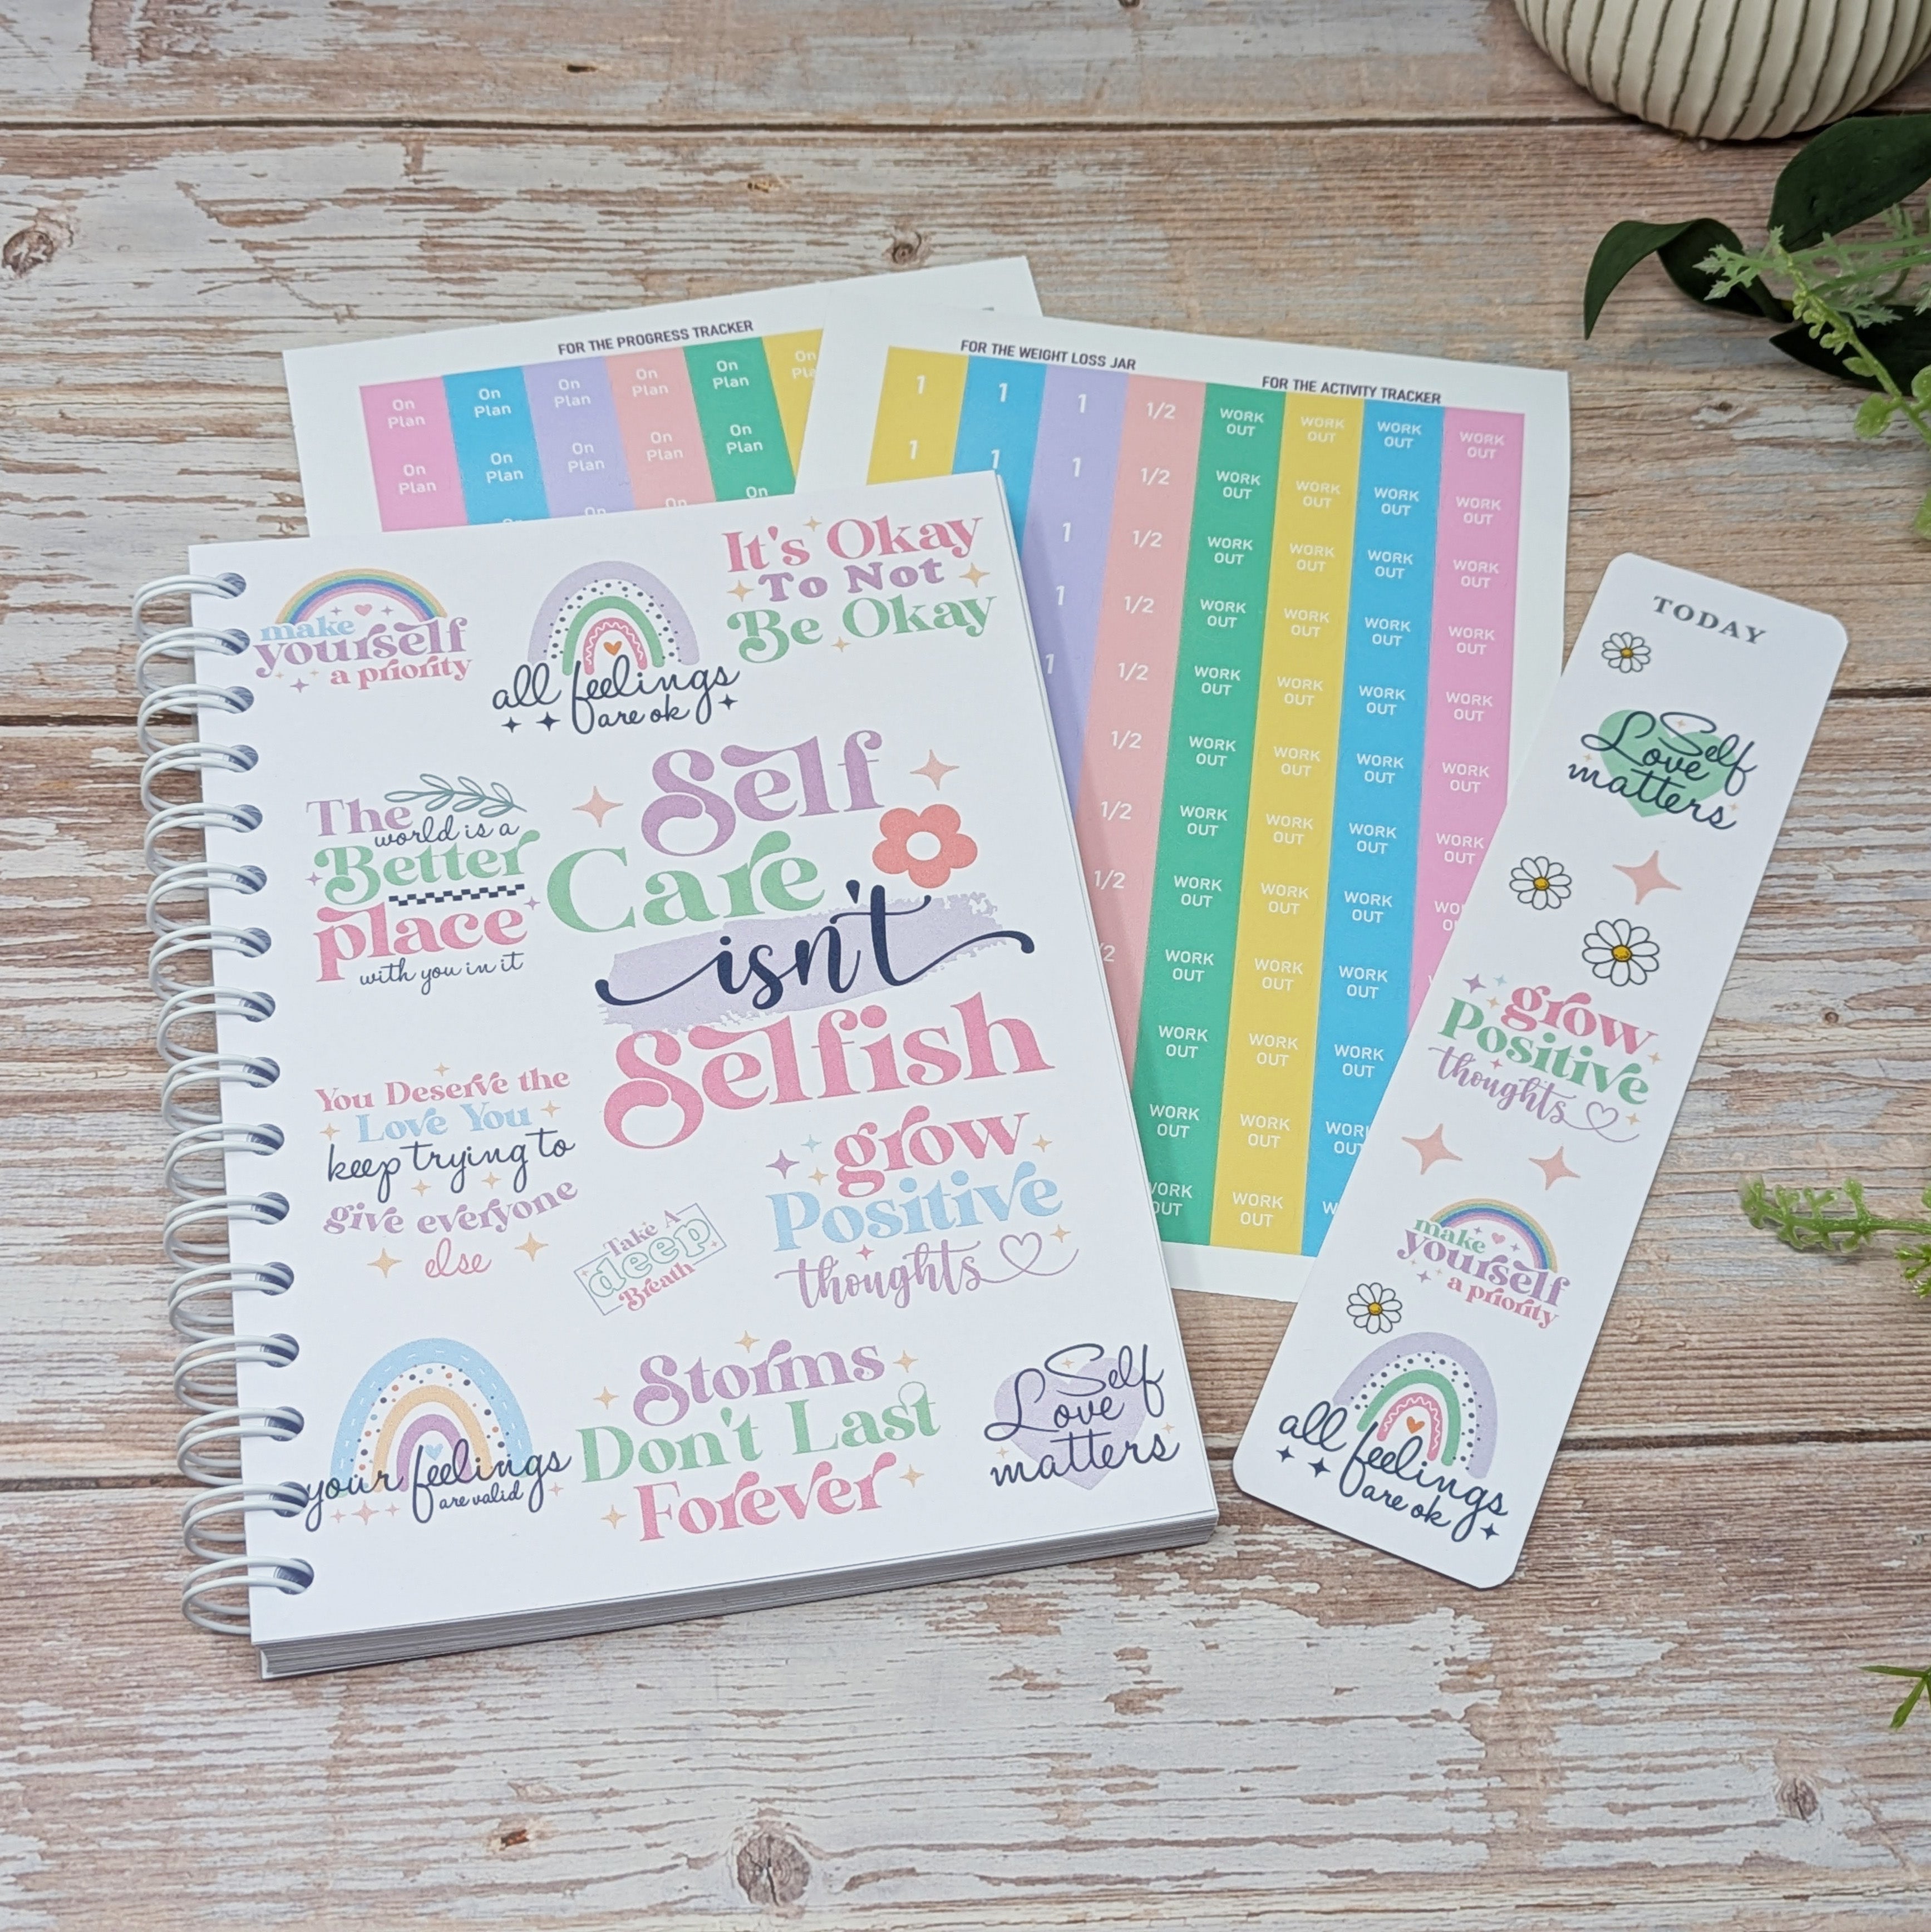 FOR THE PROGRESS TRACKER
On Plan On Plan On Plan On Plan On Plan On
On Plan On Plan On Plan On Plan On Plan
On On On
FOR THE WEIGHT LOSS JAR
1 1 1 1/2
1 1 1 1/2
1 1/2
1 1/2
1 1/2
1/2
1/2
1/2
FOR THE ACTIVITY TRACKER
WORK OUT WORK OUT WORK OUT WORK OUT
WORK OUT WORK OUT WORK OUT WORK OUT
WORK OUT WORK OUT WORK OUT WORK OUT
WORK OUT WORK OUT WORK OUT WORK OUT
WORK OUT WORK OUT WORK OUT WORK OUT
WORK OUT WORK OUT WORK OUT WORK OUT
WORK OUT WORK OUT WORK OUT WORK OUT
WORK OUT WORK OUT WORK OUT
WORK OUT WORK OUT WORK OUT
WORK OUT WORK OUT WORK OUT
WORK OUT WORK OUT
WORK OUT
make
yourself
a priority
all feelings
are ok
It's Okay
To Not
Be Okay
The
world is a
Better
place
with you in it
Self
Care
isn't
Selfish
You Deserve the
Love You
keep trying to
give everyone
else
Take A
deep
Breath
grow
Positive
thoughts
your feelings
are valid
Storms
Don't Last
Forever
Self
Love
matters
TODAY
Self
Love
matters
grow
Positive
thoughts
make
yourself
a priority
all feelings
are ok